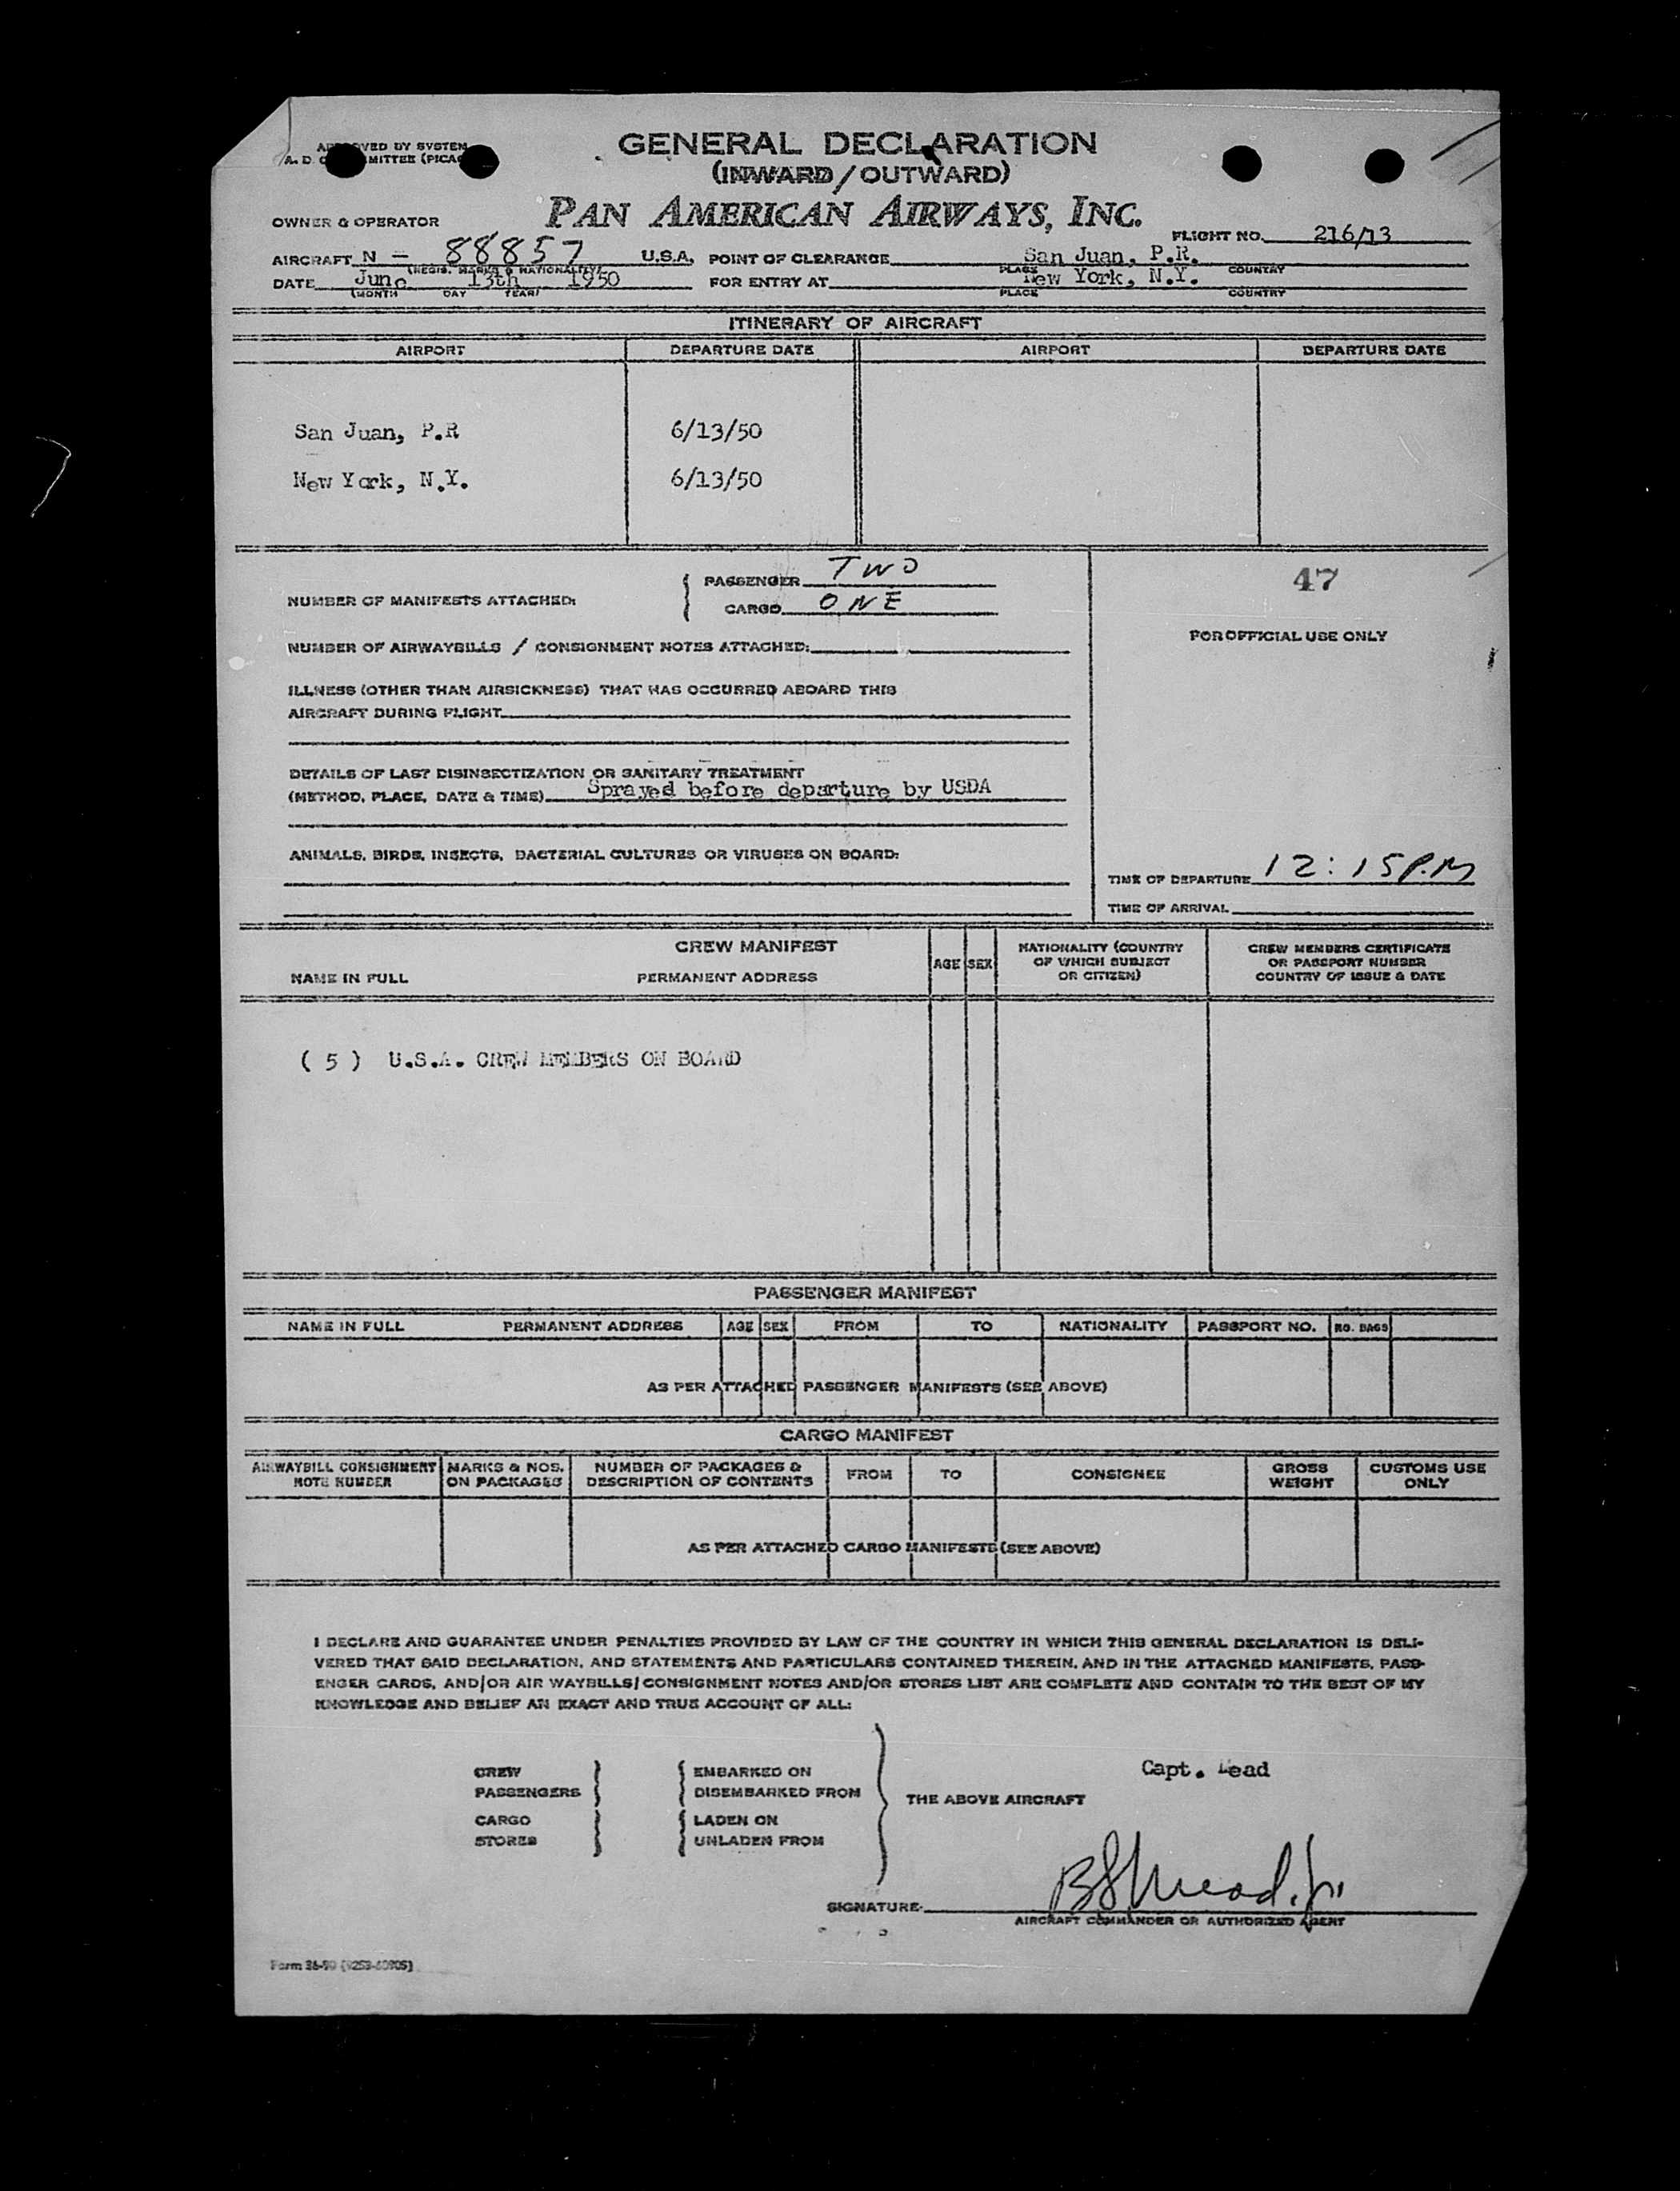 APPROVED BY SYSTEM
A. D. COMMITTEE (PICAO)
GENERAL DECLARATION
(INWARD/OUTWARD)
PAN AMERICAN AIRWAYS, INC.
OWNER & OPERATOR
FLIGHT NO. 216/13
AIRCRAFT N - 88857 U.S.A. POINT OF CLEARANCE San Juan, P.R.
(REGIS. MARKS & NATIONALITY) PLACE COUNTRY
DATE June 13th 1950 FOR ENTRY AT New York, N.Y.
(MONTH DAY YEAR) PLACE COUNTRY
ITINERARY OF AIRCRAFT
AIRPORT DEPARTURE DATE AIRPORT DEPARTURE DATE
San Juan, P.R 6/13/50
New York, N.Y. 6/13/50
NUMBER OF MANIFESTS ATTACHED:
PASSENGER TWO
CARGO ONE
47
FOR OFFICIAL USE ONLY
NUMBER OF AIRWAYBILLS / CONSIGNMENT NOTES ATTACHED:
ILLNESS (OTHER THAN AIRSICKNESS) THAT HAS OCCURRED ABOARD THIS
AIRCRAFT DURING FLIGHT
DETAILS OF LAST DISINSECTIZATION OR SANITARY TREATMENT
(METHOD, PLACE, DATE & TIME) Sprayed before departure by USDA
ANIMALS, BIRDS, INSECTS, BACTERIAL CULTURES OR VIRUSES ON BOARD:
TIME OF DEPARTURE 12:15 P.M
TIME OF ARRIVAL
CREW MANIFEST
NAME IN FULL PERMANENT ADDRESS AGE SEX
NATIONALITY (COUNTRY
OF WHICH SUBJECT
OR CITIZEN)
CREW MEMBERS CERTIFICATE
OR PASSPORT NUMBER
COUNTRY OF ISSUE & DATE
( 5 ) U.S.A. CREW MEMBERS ON BOARD
PASSENGER MANIFEST
NAME IN FULL PERMANENT ADDRESS AGE SEX FROM TO NATIONALITY PASSPORT NO. NO. BAGS
AS PER ATTACHED PASSENGER MANIFESTS (SEE ABOVE)
CARGO MANIFEST
AIRWAYBILL CONSIGNMENT
NOTE NUMBER
MARKS & NOS.
ON PACKAGES
NUMBER OF PACKAGES &
DESCRIPTION OF CONTENTS
FROM TO CONSIGNEE
GROSS
WEIGHT
CUSTOMS USE
ONLY
AS PER ATTACHED CARGO MANIFESTS (SEE ABOVE)
I DECLARE AND GUARANTEE UNDER PENALTIES PROVIDED BY LAW OF THE COUNTRY IN WHICH THIS GENERAL DECLARATION IS DELI-
VERED THAT SAID DECLARATION, AND STATEMENTS AND PARTICULARS CONTAINED THEREIN, AND IN THE ATTACHED MANIFESTS, PASS-
ENGER CARDS, AND/OR AIR WAYBILLS/CONSIGNMENT NOTES AND/OR STORES LIST ARE COMPLETE AND CONTAIN TO THE BEST OF MY
KNOWLEDGE AND BELIEF AN EXACT AND TRUE ACCOUNT OF ALL:
CREW
PASSENGERS
CARGO
STORES
EMBARKED ON
DISEMBARKED FROM
LADEN ON
UNLADEN FROM
THE ABOVE AIRCRAFT
Capt. Mead
SIGNATURE B S Mead. Jr
AIRCRAFT COMMANDER OR AUTHORIZED AGENT
Form